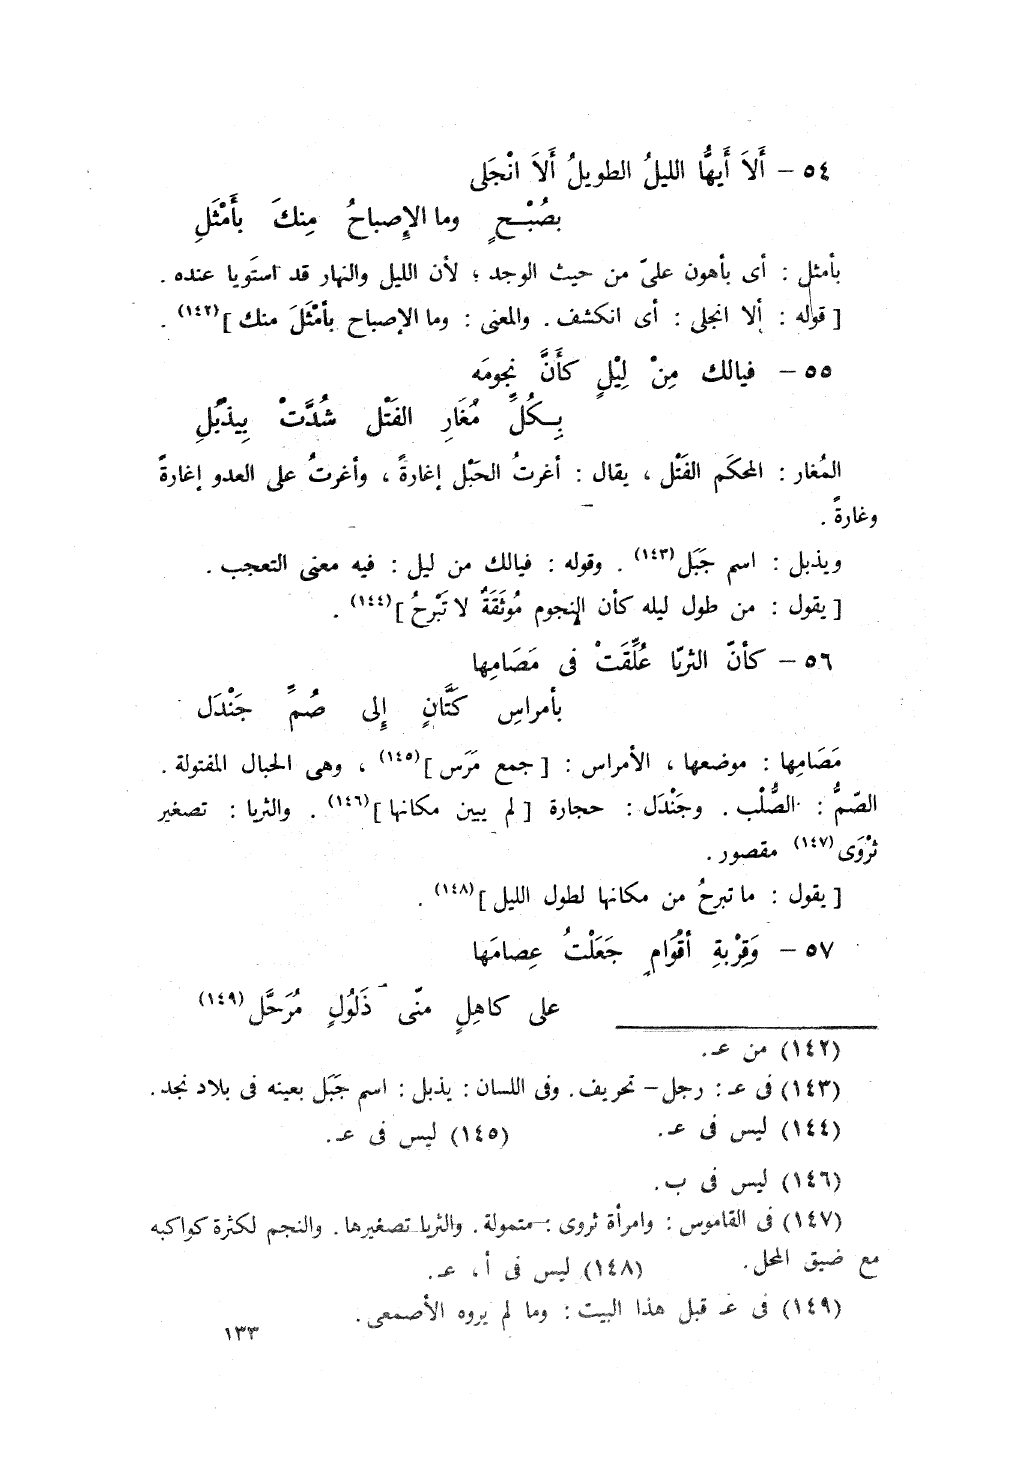 ٥٤ – أَلاَ أَيهُّا الليلُ الطويلُ أَلاَ انْجَلى
بصُبْـــحٍ وما الإِصباحُ مِنكَ بأَمْثَلِ
بأمثل : أى بأهون علىّ من حيث الوجد ؛ لأن الليل والنهار قد استَويا عنده .
[ قوله : ألا انجلى : أى انكشف . والمعنى : وما الإصباح بأمْثَلَ منك ](١٤٢) .
٥٥ – فيالك مِنْ لِيْلٍ كأَنَّ نجومَه
بِــكُلِّ مُغَارِ الفَتْل شُدَّتْ بِيذْبُلِ
المُغار : المحكَم الفَتْل ، يقال : أغرتُ الحَبْل إغارةً ، وأغرتُ على العدو إغارةً
وغارةً .
ويذبل : اسم جَبَل(١٤٣) . وقوله : فيالك من ليل : فيه معنى التعجب .
[ يقول : من طول ليله كأن النجوم مُوثَقَةٌ لا تَبْرحُ ](١٤٤) .
٥٦ – كأنّ الثريّا عُلِّقَتْ فى مَصَامِها
بأمراسِ كَتَّانٍ إِلى صُمِّ جَنْدَل
مَصَامِها : موضعها ، الأمراس : [ جمع مَرَس ](١٤٥) ، وهى الحبال المفتولة .
الصّمُّ : الصُّلْب . وجَنْدَل : حجارة [ لم يبين مكانها ](١٤٦) . والثريا : تصغير
ثرْوَى(١٤٧) مقصور .
[ يقول : ما تبرحُ من مكانها لطول الليل ](١٤٨) .
٥٧ – وَقِرْبةِ أقْوَامٍ جَعَلْتُ عِصامَها
على كاهِلٍ منّى ذَلُولٍ مُرَحَّل(١٤٩)
(١٤٢) من عـ.
(١٤٣) فى عـ : رجل – تحريف . وفى اللسان : يذبل : اسم جَبَل بعينه فى بلاد نجد .
(١٤٤) ليس فى عـ. (١٤٥) ليس فى عـ.
(١٤٦) ليس فى ب.
(١٤٧) فى القاموس : وامرأة ثروى : متمولة . والثريا تصغيرها . والنجم لكثرة كواكبه
مع ضيق المحل. (١٤٨) ليس فى أ ، عـ.
(١٤٩) فى عـ قبل هذا البيت : وما لم يروه الأصمعى .
١٣٣